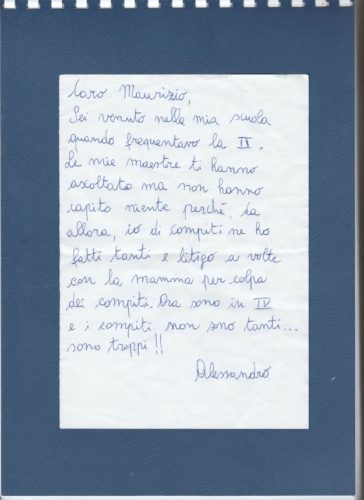 Caro Maurizio,
Sei venuto nella mia scuola
quando frequentavo la II.
Le mie maestre ti hanno
ascoltato ma non hanno
capito niente perchè, da
allora, io di compiti ne ho
fatti tanti e litigo a volte
con la mamma per colpa
dei compiti. Ora sono in IV
e i compiti non sono tanti...
sono troppi!!
Alessandro